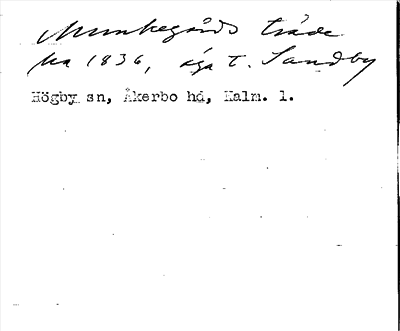 Munkegårds träde
ka 1836, äga t. Sandby
Högby sn, Åkerbo hd, Kalm. l.